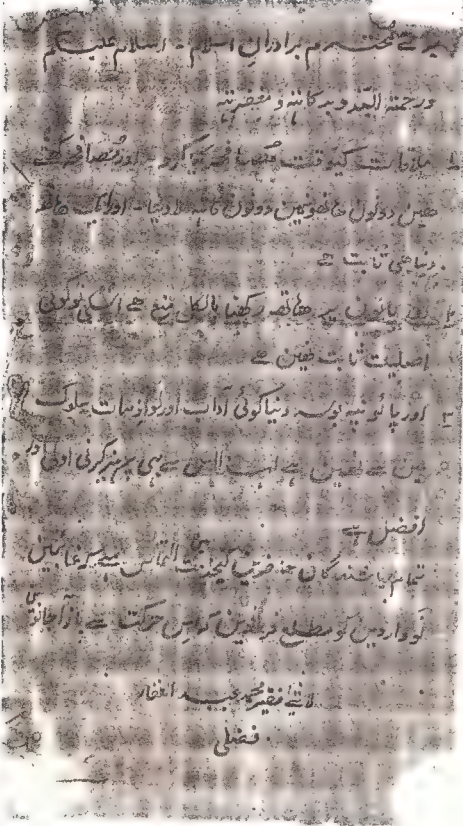 میرے محترم برادرانِ اسلام - اسلام علیکم
ورحمتہ اللہ وبرکاتہ و مغفرتہ
۱ ملاقات کیوقت مصافحہ کیا کرو - اور مصافحہ کے
میں دونوں ہاتھوں میں دونوں ہاتھ لانا اور ایک ہاتھ
دینا بھی ثابت ہے
۲ پائوں پر ہاتھ رکھنا بالکل منع ہے اسکی کوئی
اصلیت ثابت نہین ہے
۳ اور پائو پہ بوسہ دینا کوئی آداب اور لوازمات سلوک
میں سے نہین ہے لہذا اس سے بھی پرہیز کرنی اولیٰ اور
افضل ہے
تمام باشندگان کیخدمت میں التماس ہے
نوواردین کو مطلع فرمادین کہ اس حرکت سے باز آجائیں
فقیر محمد عبد الغفار
فضلی